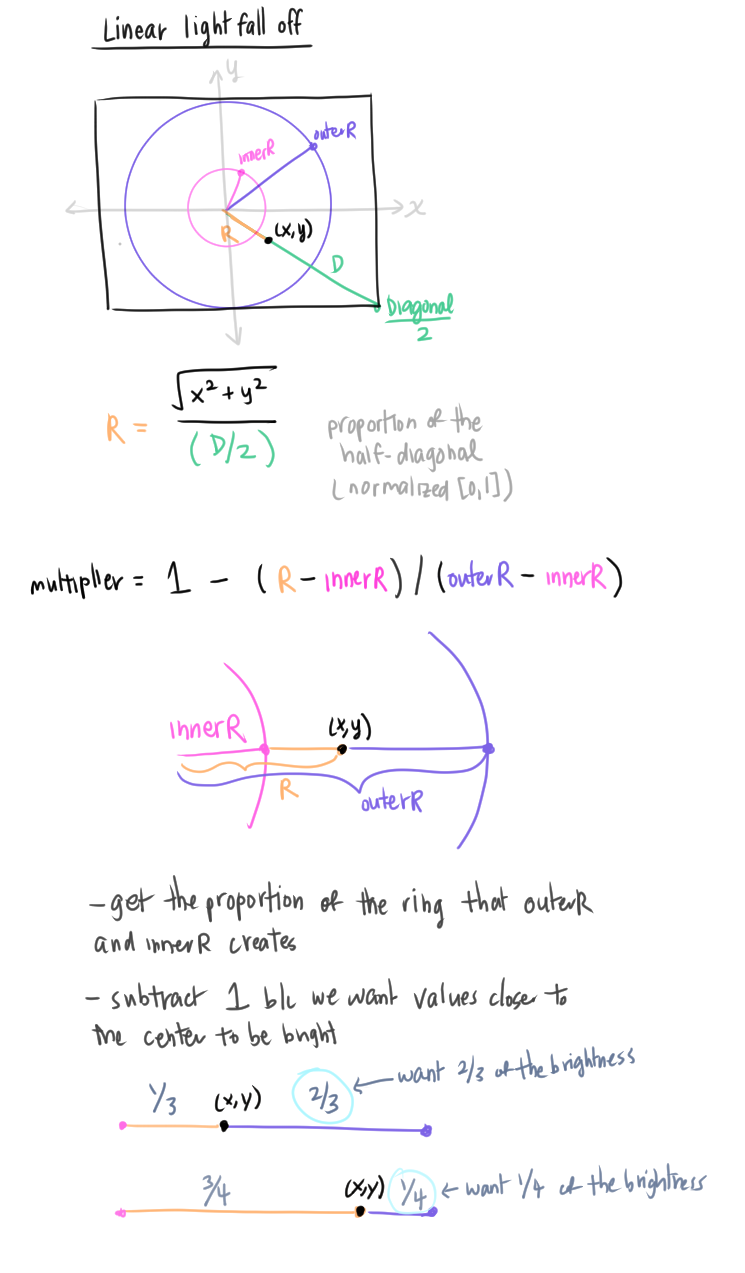 Linear light fall off
y
outerR
innerR
x
R
(x,y)
D
Diagonal
2
R = √x² + y²
(D/2)
proportion of the
half-diagonal
(normalized [0,1])
multiplier = 1 - (R - innerR) / (outerR - innerR)
innerR
(x,y)
R
outerR
- get the proportion of the ring that outerR
and innerR creates
- subtract 1 b/c we want values closer to
the center to be bright
1/3 (x,y) 2/3 ← want 2/3 of the brightness
3/4 (x,y) 1/4 ← want 1/4 of the brightness